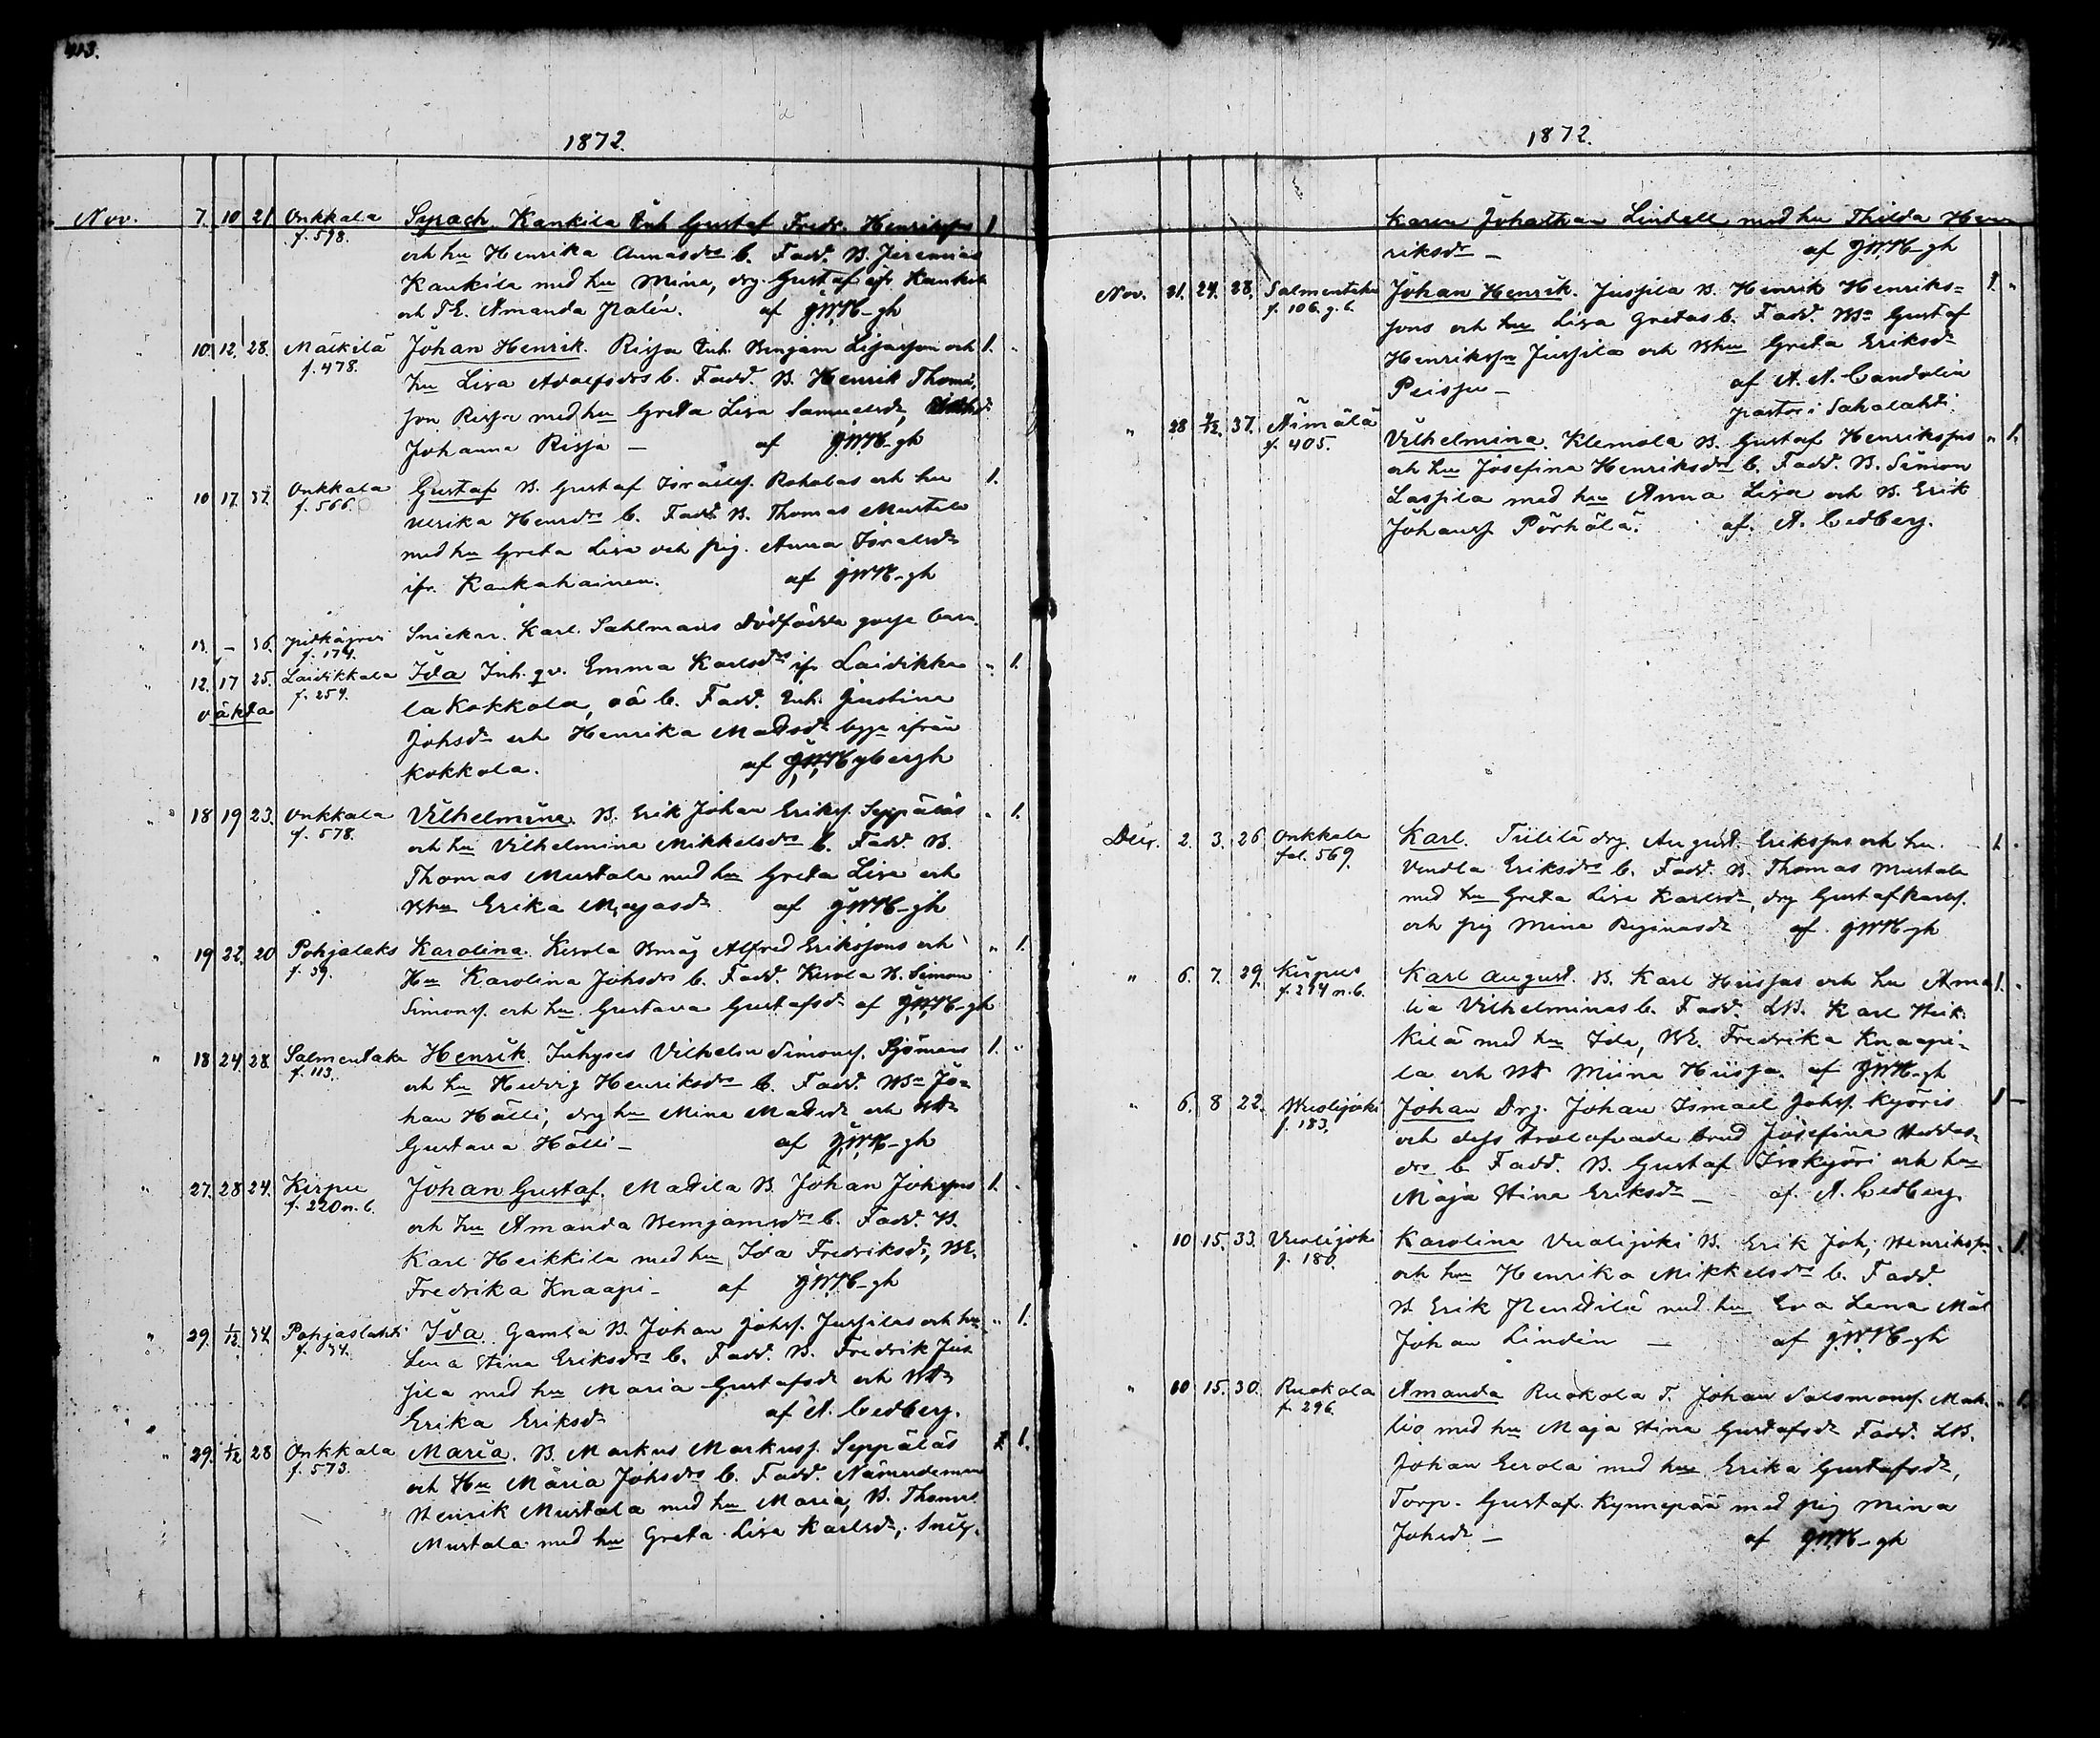 413.
1872.
Nov. 7. 10 21 Onkkala Syrach. Kankila Inh Gustaf Fredr. Henrikssons 1
f. 598. och hu Henrika Annasdrs b. Fadd. B. Jeremias
Kankila med hu Mina, drg. Gustaf ifr Kankila
och TE. Amanda Palén. af JWH-gh
10. 12. 28. Mälkilä Johan Henrik. Rissa Inh. Benjam Lisasson och 1.
f. 478. hu Lisa Adolfsdrs b. Fadd. B. Henrik Thomas
son Rissa med hu Greta Lisa Samuelsdr,
Johanna Rissa — af JWH-gh
10 17. 37. Onkkala Gustaf B. Gustaf Israelss. Roholas och hu 1.
f. 566. Ulrika Henrsdrs b. Fadd. B. Thomas Mustala
med hu Greta Lisa och pig. Anna Israelsdr
ifr. Kankahainen. af JWH-gh
13. — 36. f. 174. Snickar. Karl Sahlmans Dödfödda gosse barn.
12. 17 25. Laidikkala Ida Inh. qv. Emma Karlsdrs ifr Laidikka " 1.
f. 254. la Kokkola, oä b. Fadd. Inh. Justina
väkta Johsdr och Henrika Matsdr bgge ifrån
Kokkola. af JWHgbergh
" 18 19 23. Onkkala Vilhelmina. B. Erik Johan Erikss. Seppäläs " 1.
f. 578. och hu Vilhelmina Mikkelsdrs b. Fadd. B.
Thomas Mustala med hu Greta Lisa och
Bhu Erika Majasdr af JWH-gh
" 19 22. 20 Pohjalaks Karolina. Kerola Bmåg Alfred Erikssons och " 1.
f. 39. Hu Karolina Johsdrs b. Fadd. Kerola B. Simon
Simonss. och hu Gustava Gustafsdr af JWH-gh
" 18 24 28. Salmentaka Henrik. Inhyses Vilhelm Simonss. Sjömans 1.
f. 113. och hu Hedvig Henriksdrs b. Fadd. Bsn Jo-
han Hälli, drg hu Mina Matsdr och Bdr
Gustava Hälli — af JWH-gh
" 27. 28 24. Kirpu Johan Gustaf. Matila B. Johan Johssns 1.
f. 220 n. b. och hu Amanda Benjamsdrs b. Fadd. B.
Karl Heikkila med hu Ida Fredriksdr, BE.
Fredrika Knaapi — af JWH-gh
" 29. 1/12. 34. Pohjaslahti Ida. Gamla B. Johan Johss. Jussilas och hu " 1.
f. 34. Lena Stina Eriksdrs b. Fadd. B. Fredrik Jus
sila med hu Maria Gustafsdr och Bdr
Erika Eriksdr af A. Cedberg.
" 29. 1/12 28 Onkkala Maria. B. Markus Markuss. Seppäläs 1.
f. 573. och Hu Maria Johsdrs b. Fadd. Nämndeman
Henrik Mustala med hu Maria, B. Thomas
Mustala med hu Greta Lisa Karlsdr, Snig.
1872.
Karen Johathan Lindell med hu Thilda Hen
riksdr — af JWH-gh
Nov. 21. 24. 28. Salmentaka Johan Henrik. Jussila B. Henrik Henriks= 1. "
f. 106. g. b. sons och hu Lisa Gretas b. Fadd. Bsn Gustaf
Henrikssn Jussila och Bhu Greta Eriksdr
Peissu — af A. A. Candolin
pastor i Sahalahti.
" 28 4/12. 37. Äimälä Vilhelmina. Klemola B. Gustaf Henrikssns " 1.
f. 405. och hu Josefina Henriksdrs b. Fadd. B. Simon
Lassila med hu Anna Lisa och B. Erik
Johanss Pörhölä. af. A. Cedberg.
Decr. 2. 3. 26 Onkkala Karl. Tiililä drg. August Erikssns och hu 1. "
fol. 569. Vendla Eriksdrs b. Fadd. B. Thomas Mustala
med hu Greta Lisa Karlsdr, drg Gustaf Karlss.
och pig Mina Reginasdr af JWH-gh
" 6. 7. 29. Kirpus Karl August. B. Karl Hiissas och hu Ama 1. "
f. 214 n. b. lia Vilhelminas b. Fadd. LB. Karl Heik
kilä med hu Ida, BE. Fredrika Knaapi-
la och Bdr Miina Hiissa. af JWH-gh
" 6. 8 22. Wuolijoki Johan Drg. Johan Ismael Johss. Kyöris 1 —
f. 183. och dess trolofvade brud Josefina Heddas-
drs b. Fadd. B. Gustaf Isokyöri och hu
Maja Stina Eriksdr — af. A. Cedberg.
" 10 15. 33. Vuolijoki Karolina Vuolijoki B. Erik Joh, Henrikssns " 1.
f. 180. och hu Henrika Mikkelsdrs b. Fadd.
B. Erik Penttilä med hu Eva Lena Mål
Johan Lindén — af JWH-gh
" 10 15. 30. Ruokola Amanda Ruokola T. Johan Salomonss. Mak- " 1.
f. 296. lio med hu Maja Stina Gustafsdr Fadd. LB.
Johan Eerola med hu Erika Gustafsdr,
Torp. Gustaf Kynnepää med pig Mina
Johsdr — af JWH-gh